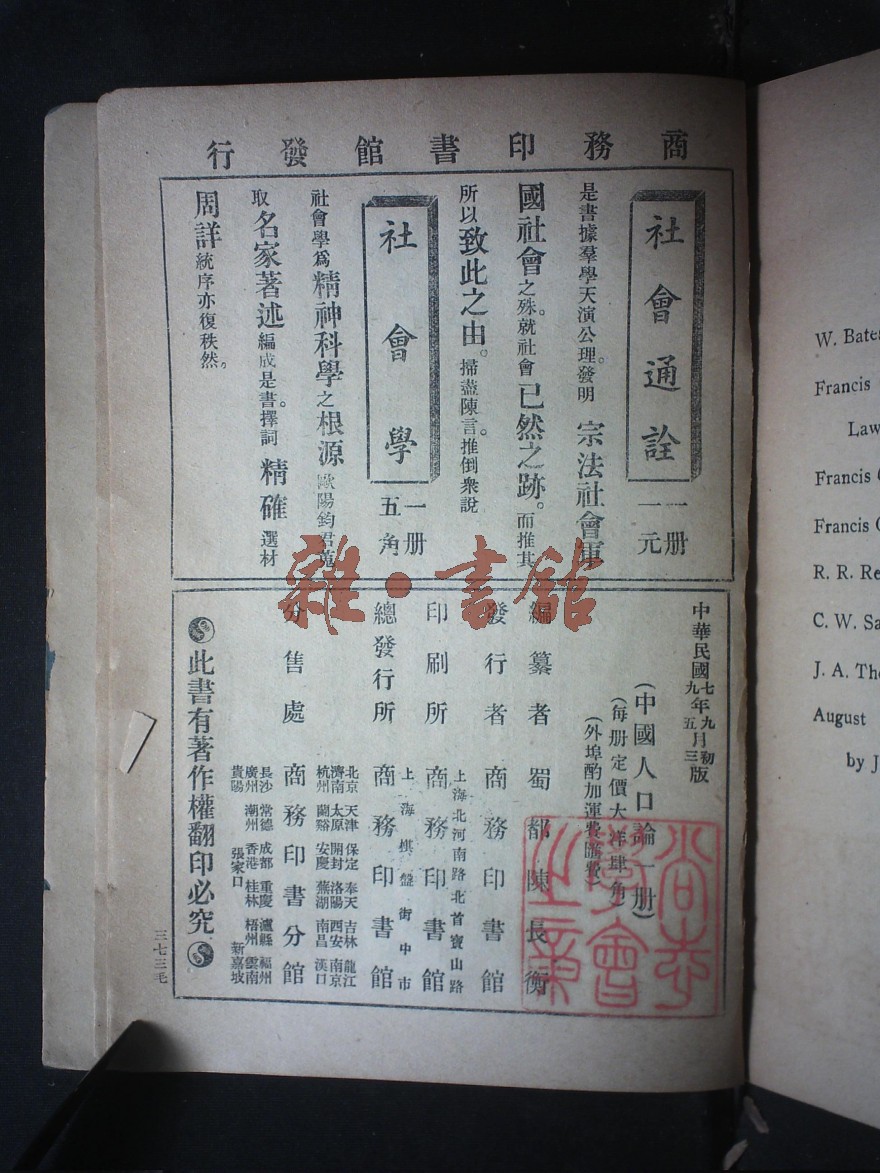 商務印書館發行
社會通詮
一册
一元
是書據羣學天演公理。發明宗法社會軍
國社會之殊。就社會已然之跡。而推其
所以致此之由。掃盡陳言。推倒衆說
社會學
一册
五角
社會學爲精神科學之根源歐陽鈞君蒐
取名家著述編成是書。擇詞精確選材
周詳統序亦復秩然。
中華民國七年九月初版
九 五 三
(中國人口論一册)
(每册定價大洋肆角)
(外埠酌加運費匯費)
編纂者 蜀都陳長衡
發行者 商務印書館
上海北河南路北首寶山路
印刷所 商務印書館
上海棋盤街中市
總發行所 商務印書館
分售處 商務印書分館
北京 天津 保定 奉天 吉林 龍江
濟南 太原 開封 洛陽 西安 南京
杭州 蘭谿 安慶 蕪湖 南昌 漢口
長沙 常德 成都 重慶 瀘縣 福州
廣州 潮州 香港 桂林 梧州 雲南
貴陽 張家口 新嘉坡
此書有著作權翻印必究
三七三毛
雜·書館
W. Bates
Francis
Law
Francis
Francis
R. R. Re
C. W. Sa
J. A. Tho
August
by J